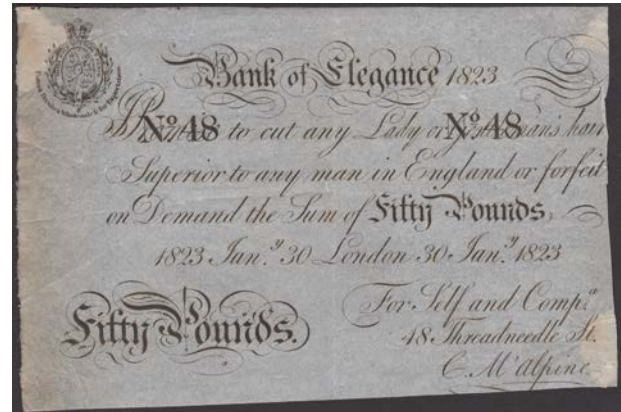 Bank of Elegance 1823
I Promise to cut any Lady or Gentleman's hair
No 48 No 48
Superior to any man in England or forfeit
on Demand the Sum of Fifty Pounds,
1823 Jan.y 30 London 30 Jan.y 1823
Fifty Pounds.
For Self and Comp.a
48 Threadneedle St.
C. McAlpine